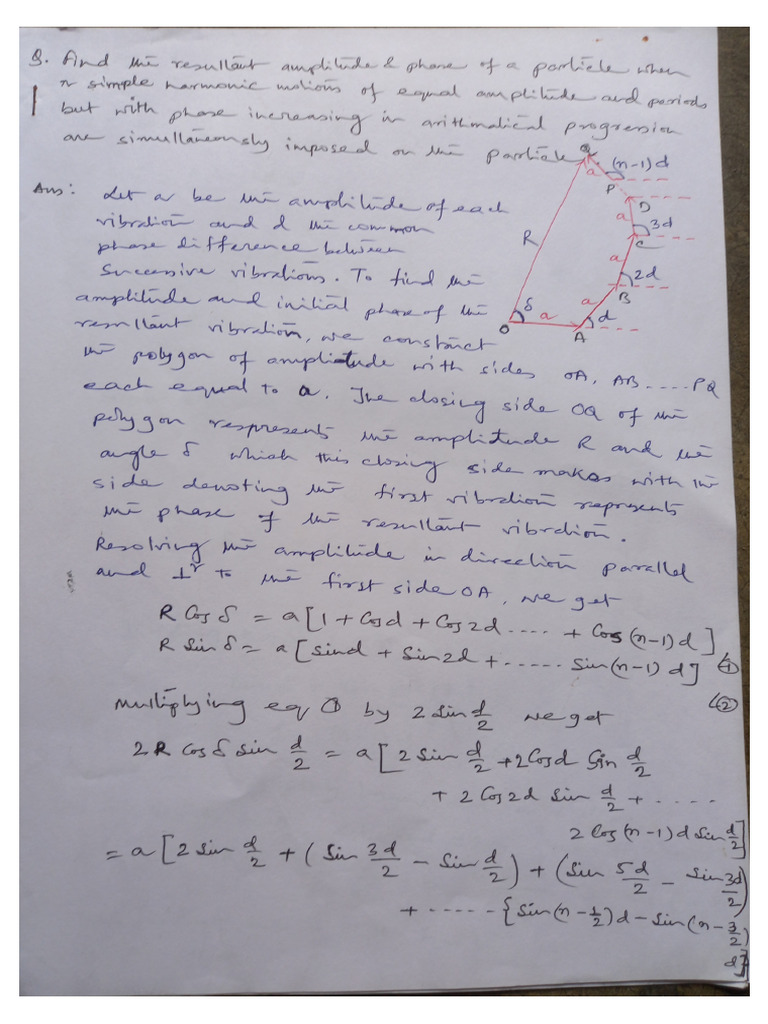 Q. Find the resultant amplitude & phase of a particle when
n simple harmonic motions of equal amplitude and periods
but with phase increasing in arithmatical progression
are simultaneously imposed on the particle
Ans: Let a be the amplitude of each
vibration and d the common
phase difference between
Successive vibrations. To find the
amplitude and initial phase of the
resultant vibration, we constract
the polygon of ampliatude with sides OA, AB.....PQ
each equal to a. The closing side OQ of the
polygon respresents the amplitude R and the
angle δ which this closing side makes with the
side denoting the first vibration represents
the phase of the resultant vibration.
Resolving the amplitude in direction parallel
and ⊥r to the first side OA, we get
R Cos δ = a[1 + Cosd + Cos2d ..... + Cos (n-1)d]
R Sin δ = a[sind + Sin2d + ...... Sin(n-1)d] ①
②
Multiplying eq ① by 2 Sin d/2 we get
2R Cos δ sin d/2 = a[2 Sin d/2 + 2Cosd Sin d/2
+ 2 Cos2d Sin d/2 + .....
2 Cos(n-1)d Sin d/2]
= a[2 Sin d/2 + (Sin 3d/2 - Sin d/2) + (Sin 5d/2 - Sin 3d/2)
+ ......{Sin(n-1/2)d - Sin(n-3/2)
d}]
Q
(n-1)d
a
P
D
a
3d
C
R
a
2d
B
a
δ
a
d
O
A